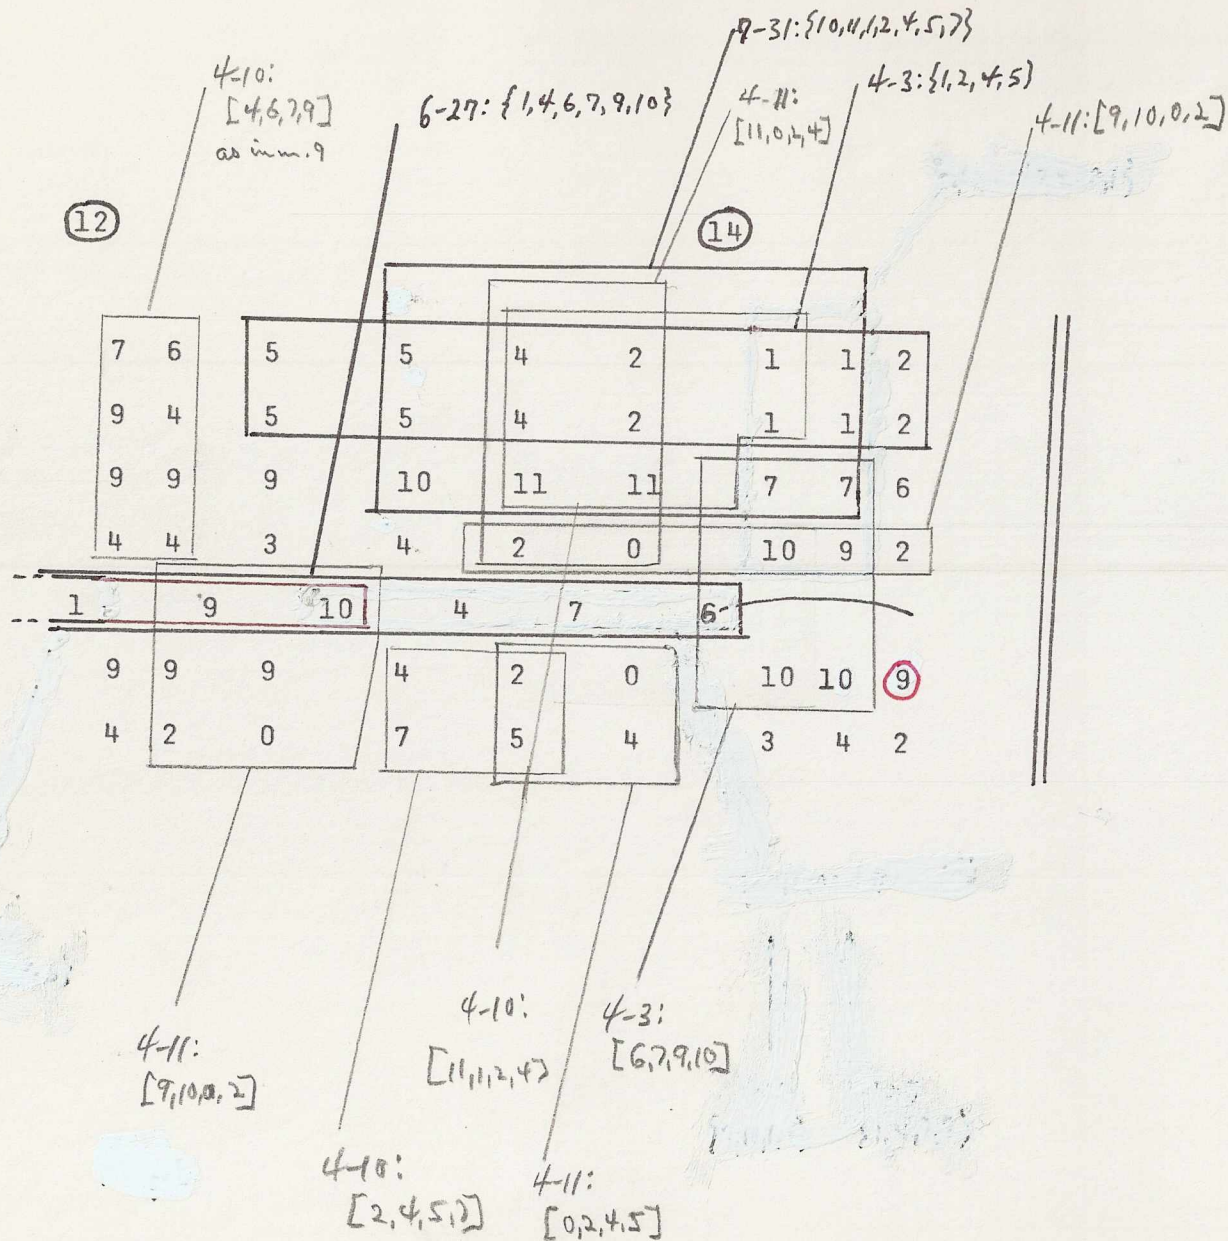 7-31: {10,11,1,2,4,5,7}
4-10:
[4,6,7,9]
as in m. 9
6-27: {1,4,6,7,9,10}
4-11:
[11,0,2,4]
4-3: {1,2,4,5}
4-11: [9,10,0,2]
12
14
7 6 5 5 4 2 1 1 2
9 4 5 5 4 2 1 1 2
9 9 9 10 11 11 7 7 6
4 4 3 4 2 0 10 9 2
1 9 10 4 7 6
9 9 9 4 2 0 10 10 9
4 2 0 7 5 4 3 4 2
4-11:
[9,10,0,2]
4-10:
[2,4,5,7]
4-10:
[11,1,2,4]
4-11:
[0,2,4,5]
4-3:
[6,7,9,10]